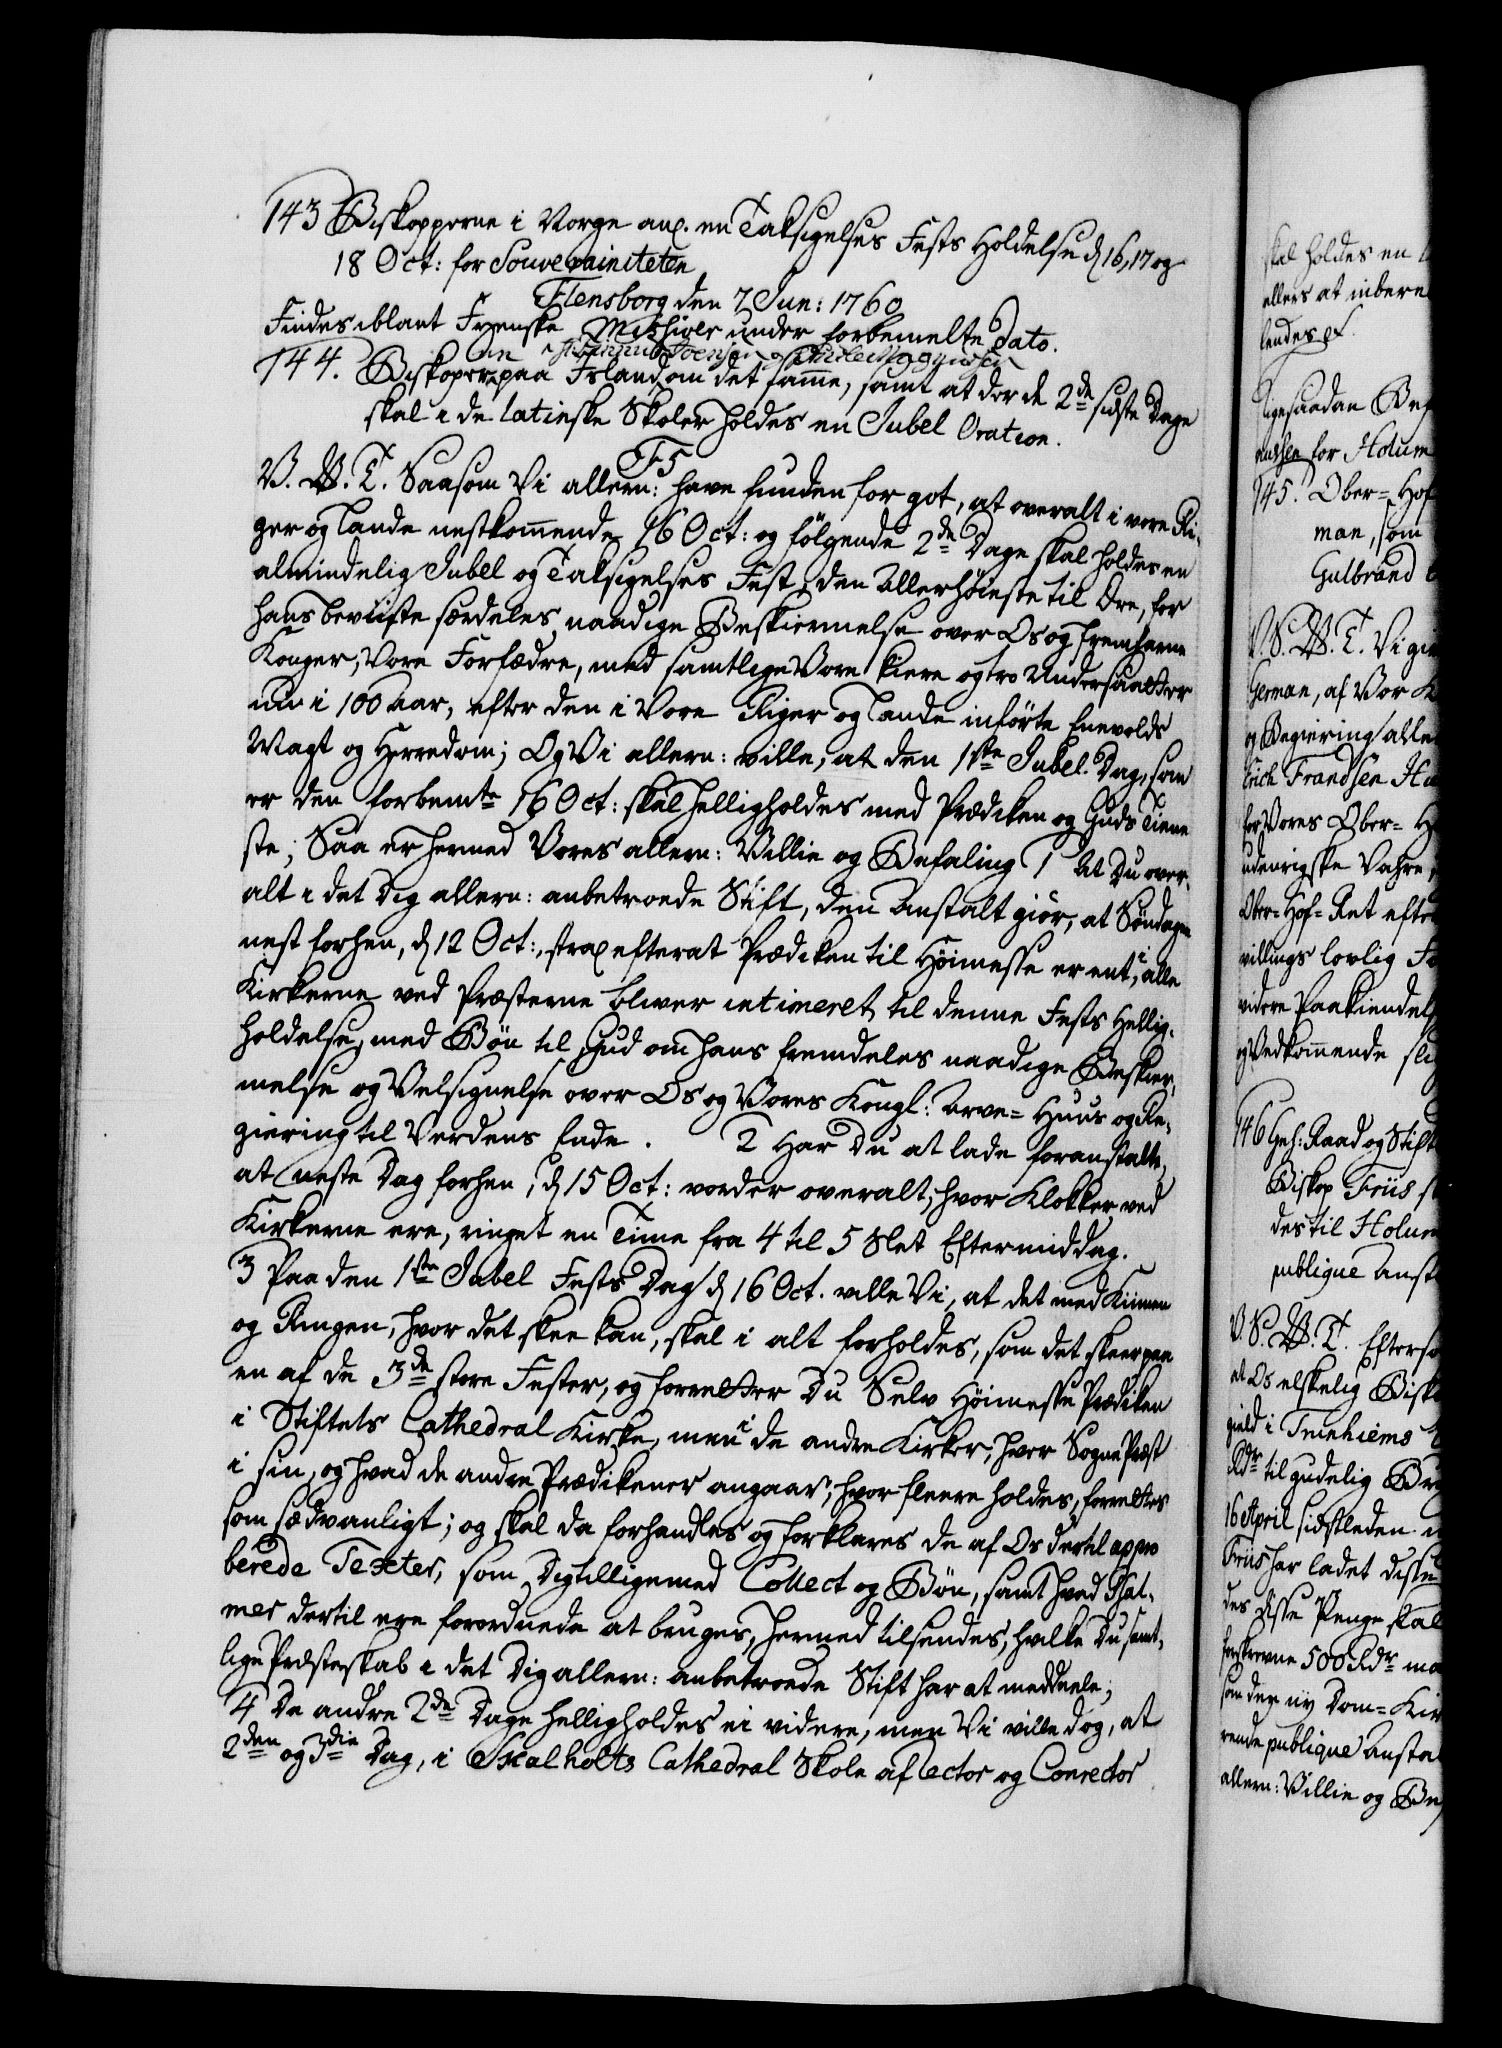 143 Biskopperne i Norge anl. en Taksigelses Fests Holdelse d. 16, 17 og
18 Oct: for Souverainiteten
Flensborg den 7 Jun: 1760
Findes iblant Fyenske Missiver under forbemelte Dato.
Finnur Joensen og Gisle Magnussen
144. Biskoperne paa Island om det samme, samt at der de 2de sidste Dage
skal i de latinske Skoler holdes en Jubel Oration.
F5
V. G. T. Saasom Vi allern: have funden for got, at overalt i vore Ri-
ger og Lande nestkommende 16 Oct: og følgende 2de Dage skal holdes en
almindelig Jubel og Taksigelses Fest, den Allerhøieste til Ære, for
hans beviiste særdeles naadige Beskiermelse over Os og fremfarne
Konger, Vore Forfædre, med samtlige Vore kiere og tro Undersaatter
nu i 100 Aar, efter den i Vore Riger og Lande inførte Enevolds
Magt og Herredom; Og Vi allern: ville, at den 1ste Jubel-Dag, som
er den forbemte 16 Oct: skal helligholdes med Prædiken og Guds Tiene
ste; Saa er hermed Vores allern: Villie og Befaling 1 At Du over-
alt i det Dig allern: anbetroede Stift, den Anstalt giør, at Søndagen
nest forhen, d. 12 Oct:, strax efterat Prædiken til Høimesse er ent, i alle
Kirkerne ved Præsterne bliver intimeret til denne Fests Hellig-
holdelse, med Bøn til Gud om hans fremdeles naadige Beskier-
melse og Velsignelse over Os og Vores Kongl: Arve-Huus og Re-
giering til Verdens Ende. 2 Har Du at lade foranstalte,
at neste Dag forhen, d. 15 Oct: vorder overalt, hvor Klokker ved
Kirkerne ere, ringet en Time fra 4 til 5 Slet Eftermiddag.
3 Paa den 1ste Jubel Fests Dag d. 16 Oct. ville Vi, at det med Kiimen
og Ringen, hvor det skee kan, skal i alt forholdes, som det skeer paa
en af de 3de store Fester, og forretter Du Selv Høimesse Prædiken
i Stiftets Cathedral Kirke, men i de andre Kirker, hver Sogne Præst
i sin, og hvad de andre Prædikener angaar, hvor fleere holdes, forrettes
som sædvanligt; og skal da forhandles og forklares de af Os dertil appro
berede Texter, som Dig tilligemed Collect og Bøn, samt hvad Psal-
mer dertil ere forordnede at bruges, hermed tilsendes, hvilke Du samt-
lige Præsteskab i det Dig allern: anbetroede Stift har at meddeele;
4 De andre 2de Dage helligholdes ei videre, men Vi ville dog, at
2den og 3die Dag, i Skalholts Cathedral Skole af Rector og Conrector
skal holdes en
ellers at inbere
lendes pf.
Ligesaadan Bef
nussen for Holum
145. Ober-Hof
man, som
Gulbrand
V. S. G. T. Vi giv
German, af Vor K
og Begiering alle
Erich Frandsen
for Vores Ober-H
udenrigske Vahre
Ober-Hof-Ret efter
villings lovlig
videre Paakiendels
og Vedkommende
146 Geh: Raad og Stift
Biskop Friis
des til Holum
publique Anst
V. S. G. T. Efterso
at Os elskelig Bisk
gield i Trunhiems
Rdr til gudelig Brug
16 April sidstleden
Friis har ladet disse
des disse Penge skal
forskrevne 500 Rdr
som den ny Dom-Kir
rende publique Ansta
allern: Villie og Bef